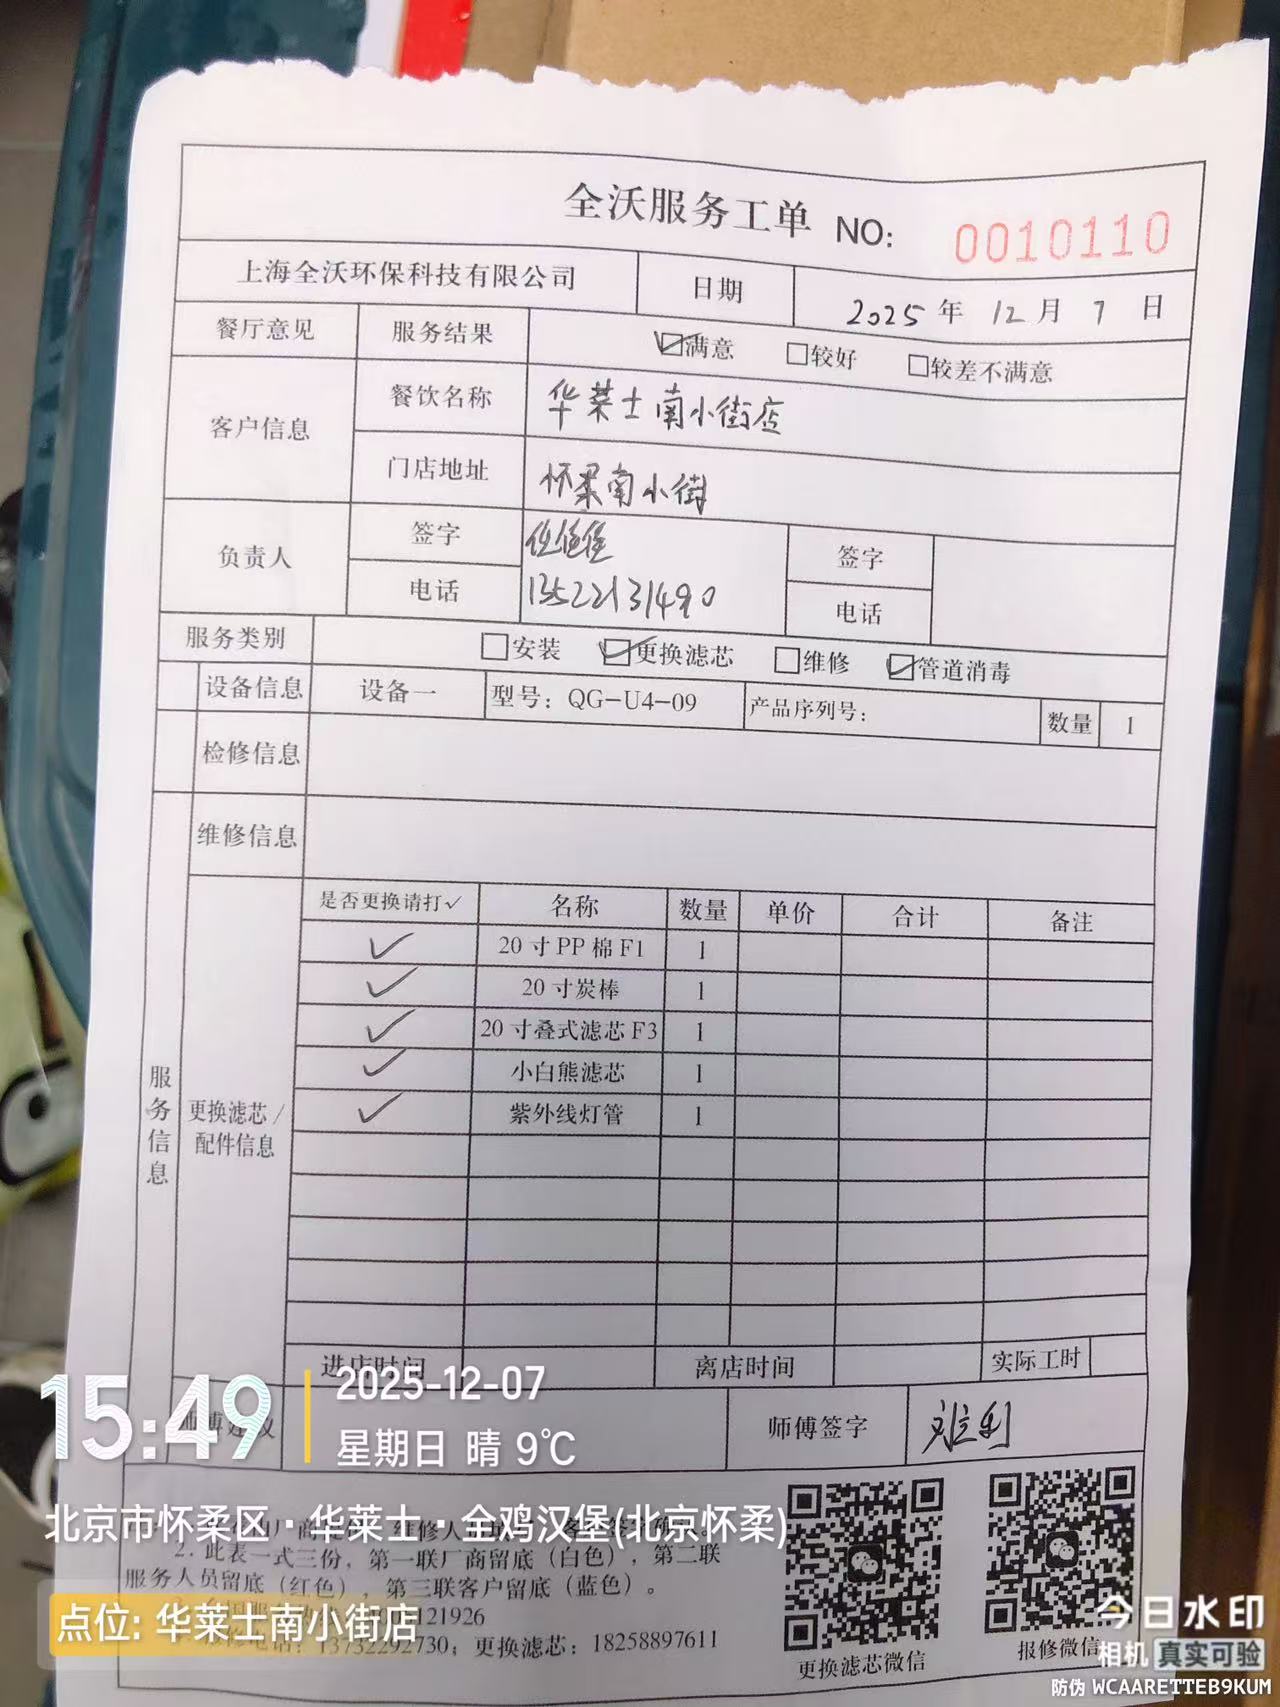 全沃服务工单 NO: 0010110
上海全沃环保科技有限公司 日期 2025 年 12 月 7 日
餐厅意见 服务结果 ☑满意 □较好 □较差不满意
客户信息 餐饮名称 华莱士南小街店
门店地址 怀柔南小街
负责人 签字 签字
电话 13522131490 电话
服务类别 □安装 ☑更换滤芯 □维修 ☑管道消毒
设备信息 设备一 型号: QG-U4-09 产品序列号: 数量 1
检修信息
维修信息
服务信息
更换滤芯/配件信息
是否更换请打✓ 名称 数量 单价 合计 备注
✓ 20寸PP棉F1 1
✓ 20寸炭棒 1
✓ 20寸叠式滤芯F3 1
✓ 小白熊滤芯 1
✓ 紫外线灯管 1
进店时间 离店时间 实际工时
师傅建议 师傅签字
2. 此表一式三份，第一联厂商留底（白色），第二联
服务人员留底（红色），第三联客户留底（蓝色）。
121926
13732292730；更换滤芯：18258897611
更换滤芯微信
报修微信
15:49
2025-12-07
星期日 晴 9℃
北京市怀柔区·华莱士·全鸡汉堡(北京怀柔)
点位: 华莱士南小街店
今日水印
相机 真实可验
防伪 WCAARETTEB9KUM